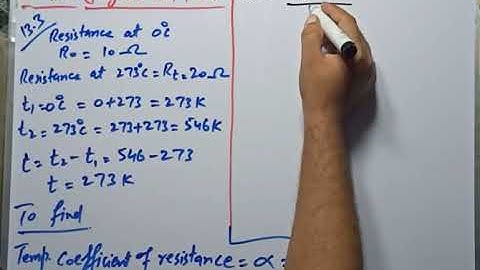 13.3
Resistance at 0°C
R₀ = 10 Ω
Resistance at 273°C = Rt = 20 Ω
t₁ = 0°C = 0+273 = 273 K
t₂ = 273°C = 273+273 = 546K
t = t₂ - t₁ = 546 - 273
t = 273 K
To find
Temp. Coefficient of resistance = α =